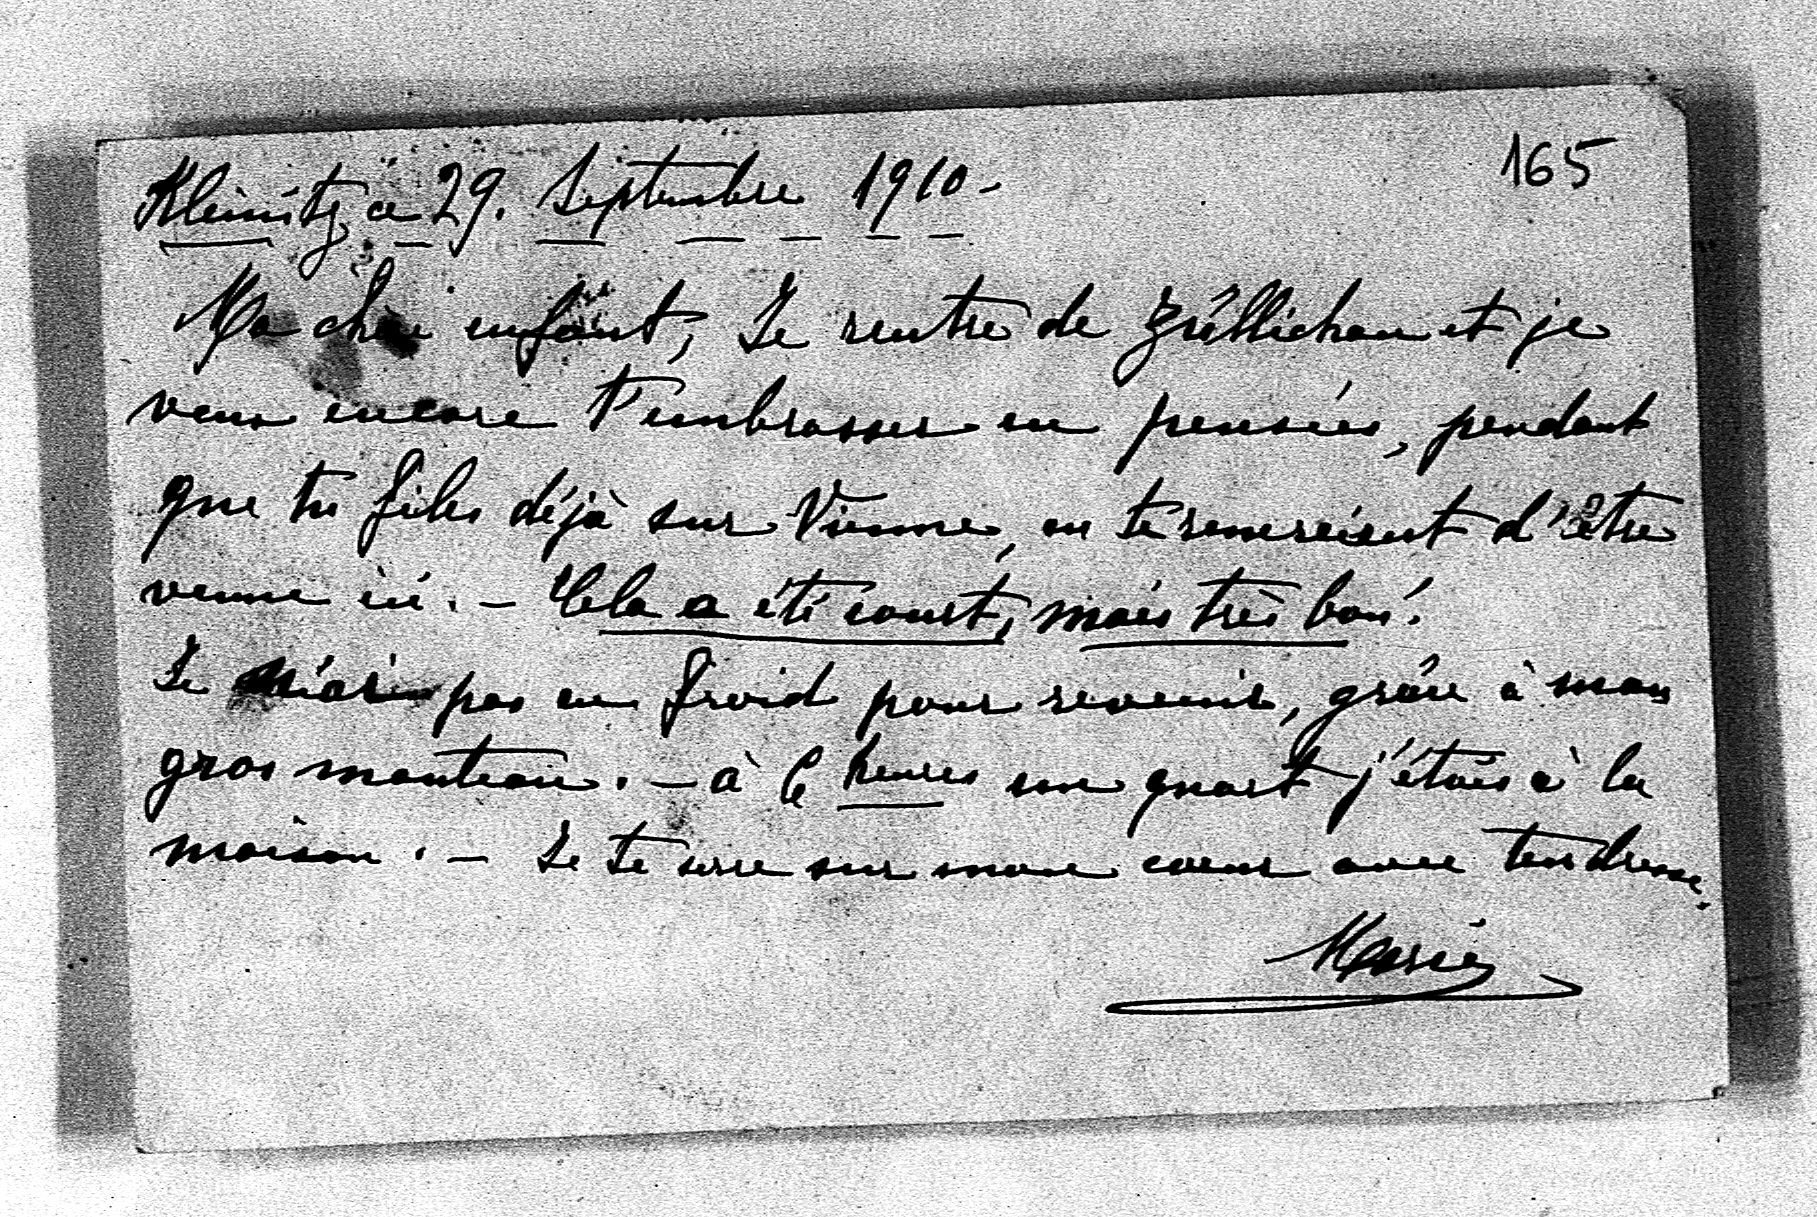 165
Kleinitz ce 29. Septembre 1910 -
Ma chère enfant, Je rentre de Züllichau et je
veux encore t'embrasser en pensées, pendant
que tu files déjà sur Vienne, en te remerciant d'être
venue ici. - Cela a été court, mais très bon!
Je n'ai pas eu froid pour revenir, grâce à mon
gros manteau. - à 6 heures un quart j'étais à la
maison. - Je te serre sur mon coeur avec tendresse.
Marie